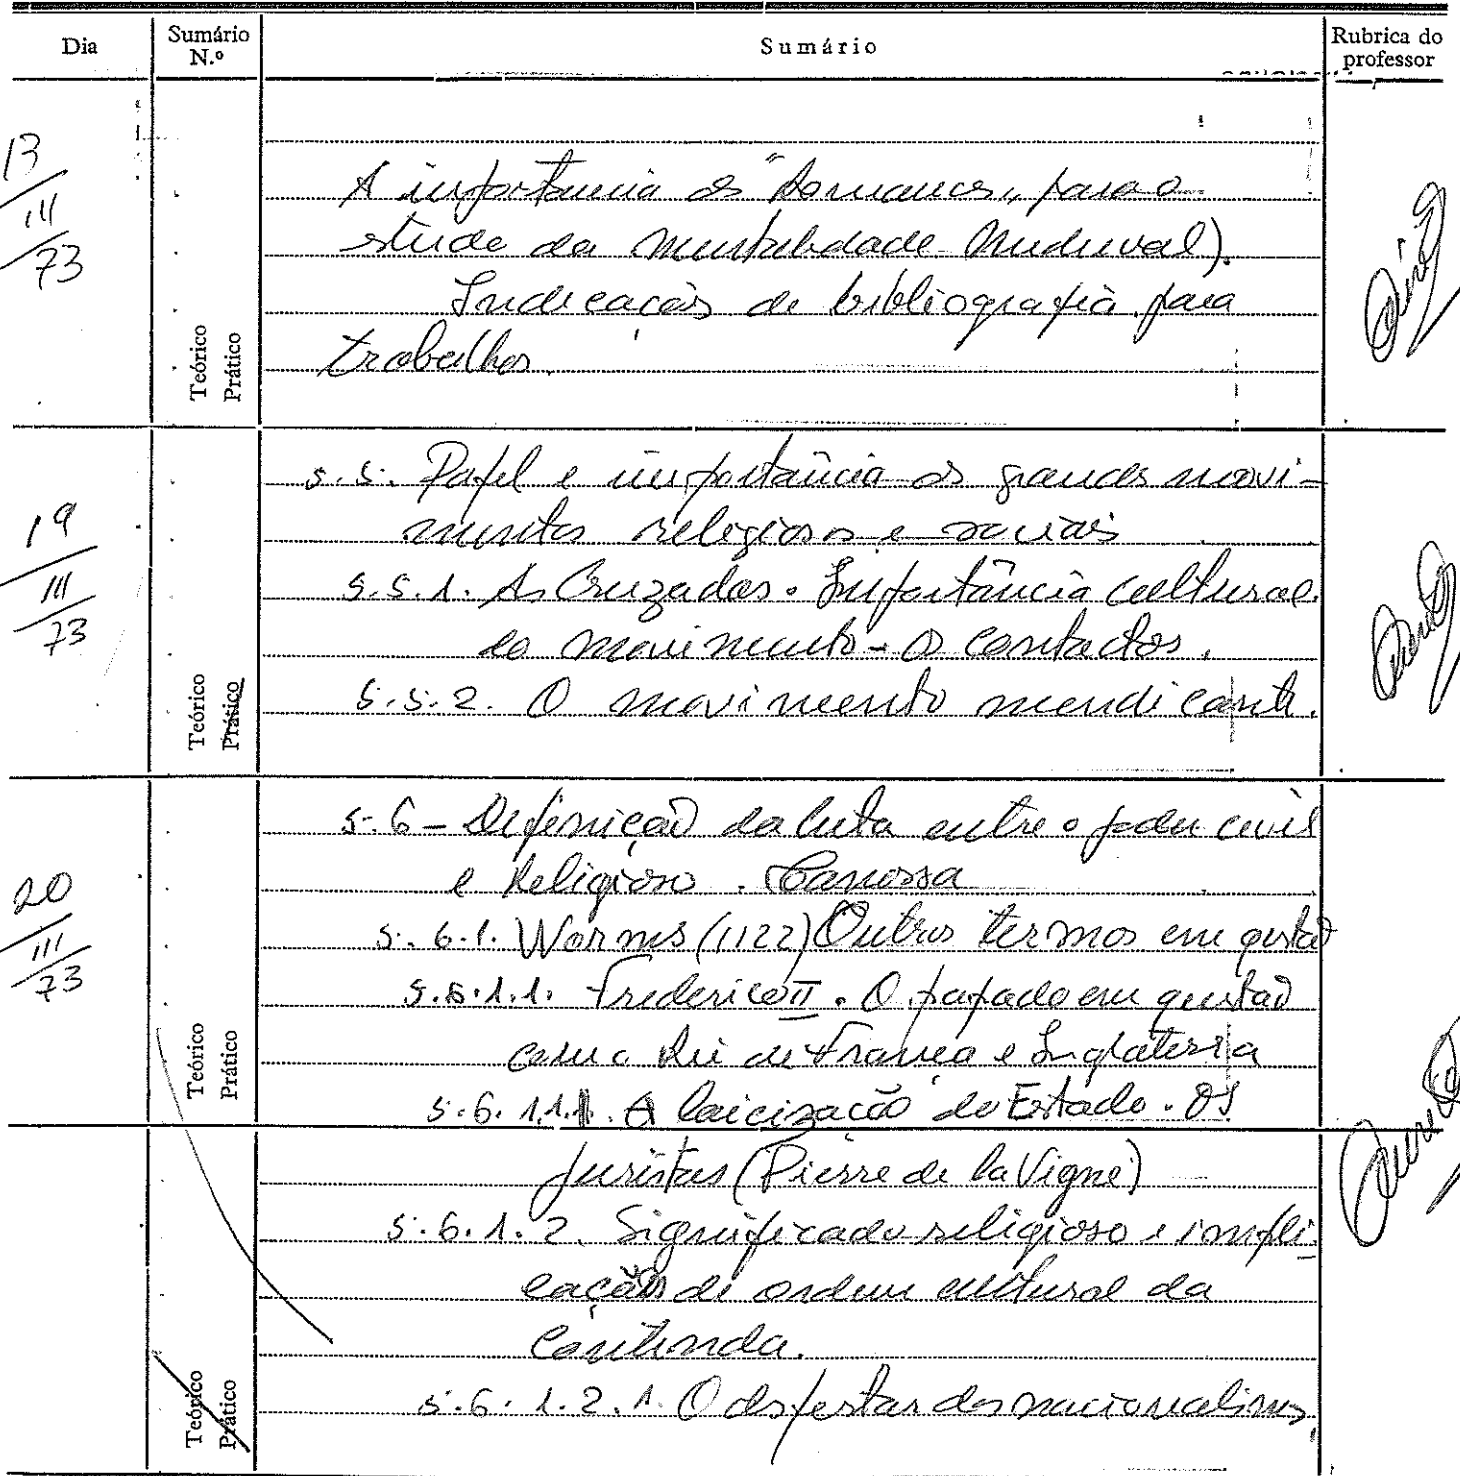 Dia
Sumário N.º
Sumário
Rubrica do professor
13/III/73
A importância dos "Romances" para o
estudo da mentalidade medieval).
Indicação de bibliografia para
trabalhos.
Teórico
Prático
19/III/73
5.5. Papel e importância dos grandes movi-
mentos religiosos e sociais
5.5.1. As Cruzadas. Importância cultural
do movimento - Os contactos.
5.5.2. O movimento mendicante.
Teórico
Prático
20/III/73
5.6 - Definição da luta entre o poder civil
e Religioso. Canossa
5.6.1. Worms (1122) Outros termos em questão
5.6.1.1. Frederico II. O papado em questão
com o Rei de França e Inglaterra
5.6.1.1.1. A laicização do Estado. Os
Teórico
Prático
juristas (Pierre de la Vigne)
5.6.1.2. Significado religioso e impli-
cações de ordem cultural da
contenda.
5.6.1.2.1. O despertar dos nacionalismos.
Teórico
Prático